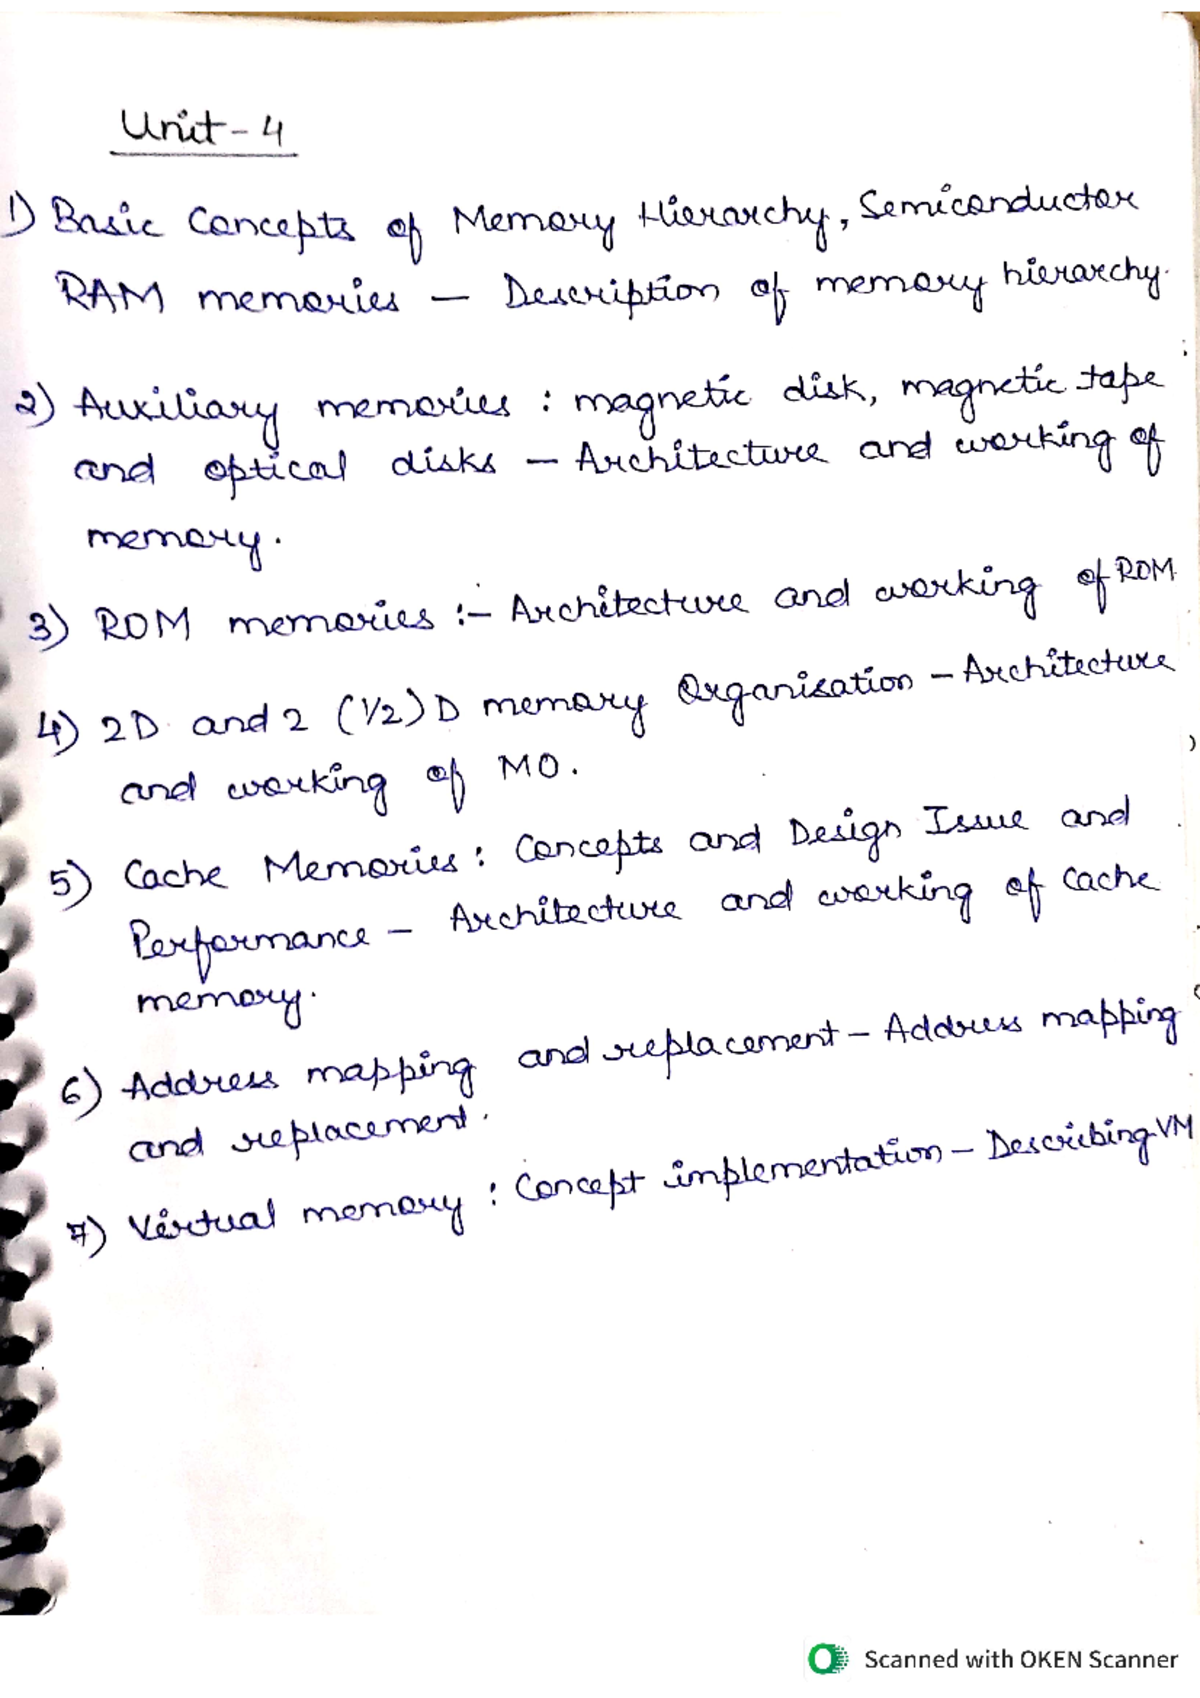 Unit - 4
1) Basic Concepts of Memory Hierarchy, Semiconductor
RAM memories — Description of memory hierarchy.
2) Auxiliary memories : magnetic disk, magnetic tape
and optical disks — Architecture and working of
memory.
3) ROM memories :- Architecture and working of ROM
4) 2D and 2 (1/2) D memory Organisation - Architecture
and working of MO.
5) Cache Memories : Concepts and Design Issue and
Performance - Architecture and working of cache
memory.
6) Address mapping and replacement - Address mapping
and replacement.
7) Virtual memory : Concept implementation - Describing VM
Scanned with OKEN Scanner